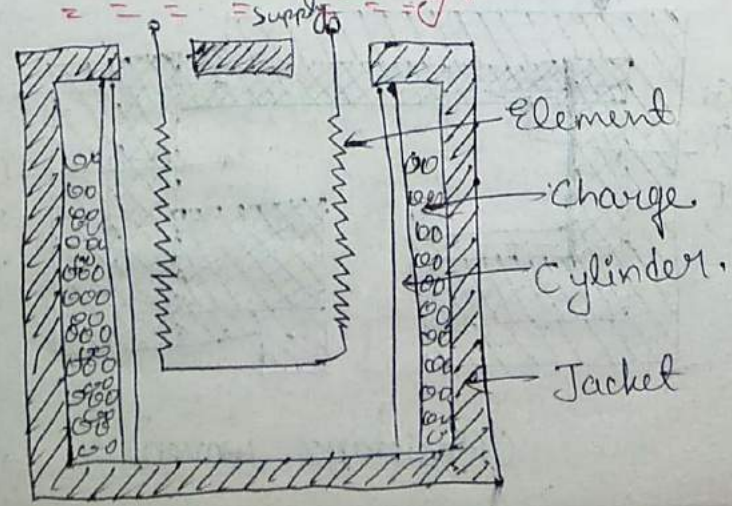 Supply
Element
Charge.
Cylinder.
Jacket